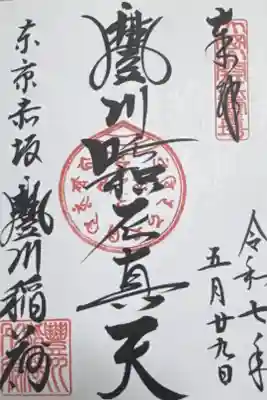 奉拝
令和七年
五月廿九日
豐川吒枳尼真天
东京赤坂豐川稲荷